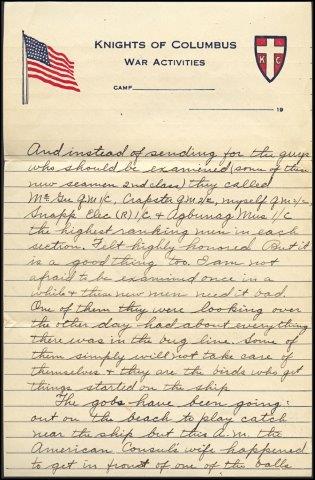 KNIGHTS OF COLUMBUS
WAR ACTIVITIES
K C
CAMP
19
And instead of sending for the guys
who should be examined (some of these
new seamen 2nd class) they called
McGee QM1C, Crapster QM2/c, myself QM2/c,
Snapp Elec (R) 1/C & Agbunag Mus 1/C
the highest ranking men in each
section. Felt highly honored. But it
is a good thing too. I am not
afraid to be examined once in a
while & these new men need it bad.
One of them they were looking over
the other day had about everything
there was in the bug line. Some of
them simply will not take care of
themselves & they are the birds who get
things started on the ship
The gobs have been going
out on the beach to play catch
near the ship but this a.m. the
American Consul's wife happened
to get in front of one of the balls